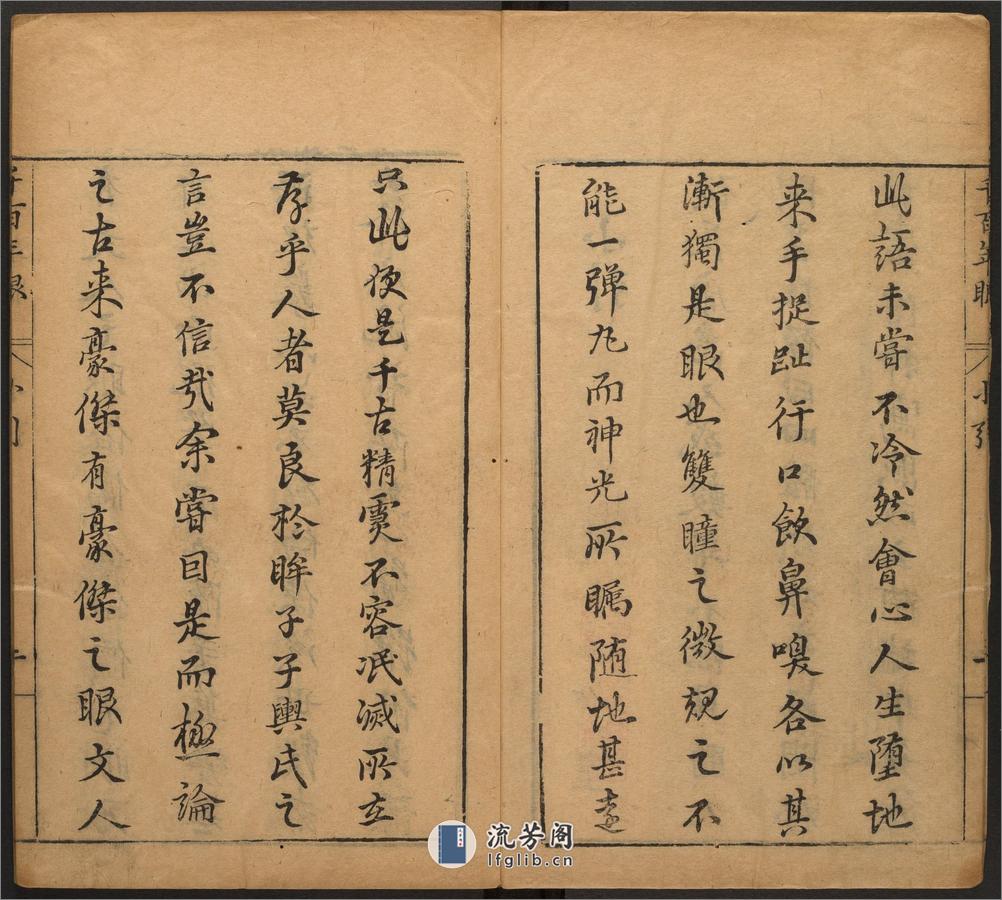 此語未嘗不冷然會心人生墮地
来手捉趾行口飲鼻嗅各以其
漸獨是眼也雙瞳之微覙之不
能一弹丸而神光所瞩随地甚遠
只此便是千古精靈不容泯滅所立
存乎人者莫良於眸子子輿氏之
言豈不信哉余嘗因是而極論
之古来豪傑有豪傑之眼文人
千百年眼
小引
一
千百年眼
小引
流芳阁
lfglib.cn